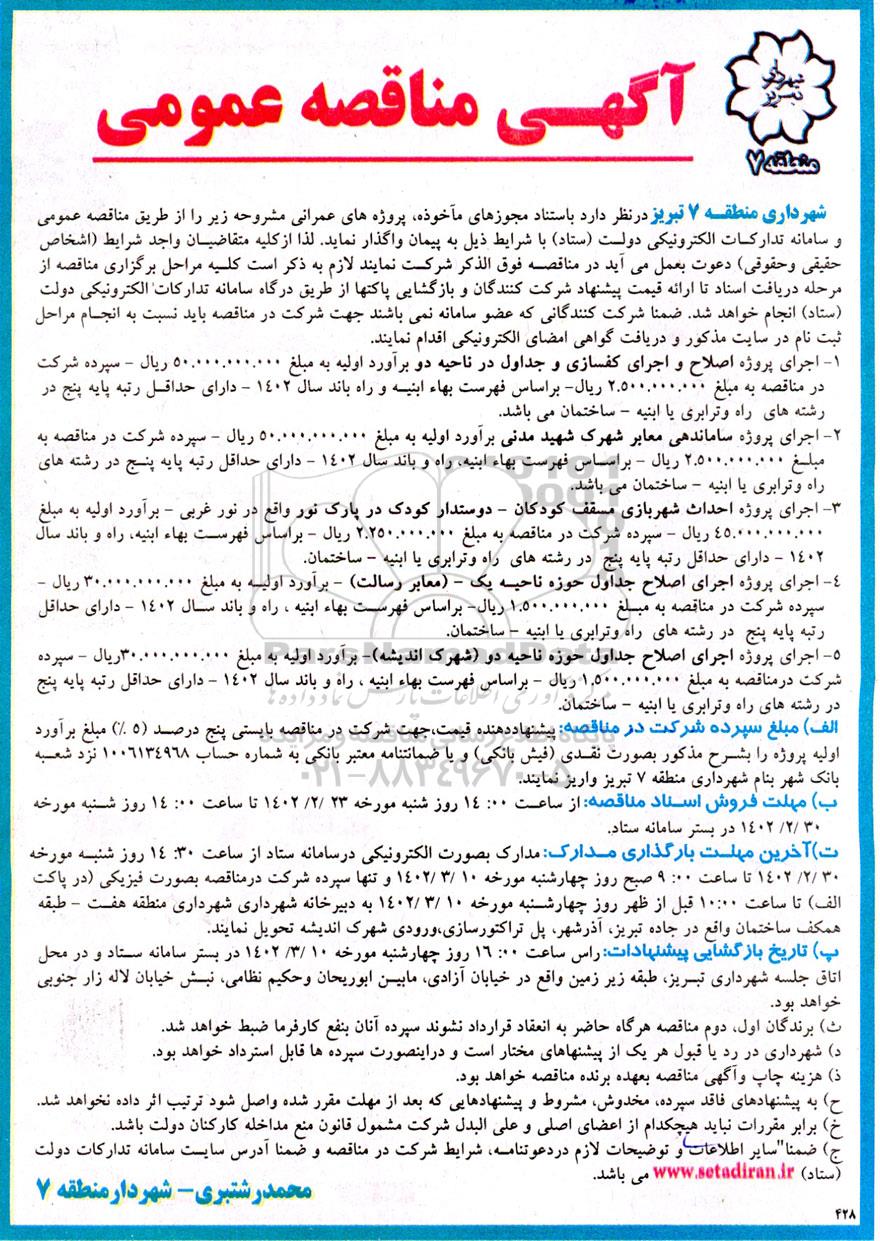 شهرداری تبریز
منطقه ۷
آگهی مناقصه عمومی
شهرداری منطقه ۷ تبریز درنظر دارد باستناد مجوزهای مآخوذه، پروژه های عمرانی مشروحه زیر را از طریق مناقصه عمومی
و سامانه تدارکات الکترونیکی دولت (ستاد) با شرایط ذیل به پیمان واگذار نماید. لذا ازکلیه متقاضیان واجد شرایط (اشخاص
حقیقی وحقوقی) دعوت بعمل می آید در مناقصه فوق الذکر شرکت نمایند لازم به ذکر است کلیه مراحل برگزاری مناقصه از
مرحله دریافت اسناد تا ارائه قیمت پیشنهاد شرکت کنندگان و بازگشایی پاکتها از طریق درگاه سامانه تدارکات الکترونیکی دولت
(ستاد) انجام خواهد شد. ضمنا شرکت کنندگانی که عضو سامانه نمی باشند جهت شرکت در مناقصه باید نسبت به انجام مراحل
ثبت نام در سایت مذکور و دریافت گواهی امضای الکترونیکی اقدام نمایند.
۱- اجرای پروژه اصلاح و اجرای کفسازی و جداول در ناحیه دو برآورد اولیه به مبلغ ۵۰.۰۰۰.۰۰۰.۰۰۰ ریال - سپرده شرکت
در مناقصه به مبلغ ۲.۵۰۰.۰۰۰.۰۰۰ ریال- براساس فهرست بهاء ابنیه و راه باند سال ۱۴۰۲ - دارای حداقل رتبه پایه پنج در
رشته های راه وترابری یا ابنیه - ساختمان می باشد.
۲- اجرای پروژه ساماندهی معابر شهرک شهید مدنی برآورد اولیه به مبلغ ۵۰.۰۰۰.۰۰۰.۰۰۰ ریال - سپرده شرکت در مناقصه به
مبلغ ۲.۵۰۰.۰۰۰.۰۰۰ ریال - براساس فهرست بهاء ابنیه، راه و باند سال ۱۴۰۲ - دارای حداقل رتبه پایه پنج در رشته های
راه وترابری یا ابنیه - ساختمان می باشد.
۳- اجرای پروژه احداث شهربازی مسقف کودکان - دوستدار کودک در پارک نور واقع در نور غربی - برآورد اولیه به مبلغ
۴۵.۰۰۰.۰۰۰.۰۰۰ ریال - سپرده شرکت در مناقصه به مبلغ ۲.۲۵۰.۰۰۰.۰۰۰ ریال - براساس فهرست بهاء ابنیه، راه و باند سال
۱۴۰۲ - دارای حداقل رتبه پایه پنج در رشته های راه وترابری یا ابنیه - ساختمان.
۴- اجرای پروژه اجرای اصلاح جداول حوزه ناحیه یک - (معابر رسالت) - برآورد اولیه به مبلغ ۳۰.۰۰۰.۰۰۰.۰۰۰ ریال -
سپرده شرکت در مناقصه به مبلغ ۱.۵۰۰.۰۰۰.۰۰۰ ریال- براساس فهرست بهاء ابنیه ، راه و باند سال ۱۴۰۲ - دارای حداقل
رتبه پایه پنج در رشته های راه وترابری یا ابنیه - ساختمان.
۵- اجرای پروژه اجرای اصلاح جداول حوزه ناحیه دو (شهرک اندیشه)- برآورد اولیه به مبلغ ۳۰.۰۰۰.۰۰۰.۰۰۰ریال - سپرده
شرکت درمناقصه به مبلغ ۱,۵۰۰,۰۰۰,۰۰۰ ریال - براساس فهرست بهاء ابنیه ، راه و باند سال ۱۴۰۲ - دارای حداقل رتبه پایه پنج
در رشته های راه وترابری یا ابنیه - ساختمان.
الف) مبلغ سپرده شرکت در مناقصه: پیشنهاددهنده قیمت،جهت شرکت در مناقصه بایستی پنج درصد (۵ ٪) مبلغ برآورد
اولیه پروژه را بشرح مذکور بصورت نقدی (فیش بانکی) و یا ضمانتنامه معتبر بانکی به شماره حساب ۱۰۰۶۱۳۴۹۶۸ نزد شعبه
بانک شهر بنام شهرداری منطقه ۷ تبریز واریز نمایند.
ب) مهلت فروش اسناد مناقصه: از ساعت ۱۴:۰۰ روز شنبه مورخه ۲۳ /۲/ ۱۴۰۲ تا ساعت ۱۴:۰۰ روز شنبه مورخه
۳۰ /۲/ ۱۴۰۲ در بستر سامانه ستاد.
ت)آخرین مهلت بارگذاری مدارک: مدارک بصورت الکترونیکی درسامانه ستاد از ساعت ۱۴:۳۰ روز شنبه مورخه
۳۰ /۲/ ۱۴۰۲ تا ساعت ۹:۰۰ صبح روز چهارشنبه مورخه ۱۰ /۳/ ۱۴۰۲ و تنها سپرده شرکت درمناقصه بصورت فیزیکی (در پاکت
الف) تا ساعت ۱۰:۰۰ قبل از ظهر روز چهارشنبه مورخه ۱۰ /۳/ ۱۴۰۲ به دبیرخانه شهرداری شهرداری منطقه هفت - طبقه
همکف ساختمان واقع در جاده تبریز، آذرشهر، پل تراکتورسازی،ورودی شهرک اندیشه تحویل نمایند.
پ) تاریخ بازگشایی پیشنهادات: راس ساعت ۱۶:۰۰ روز چهارشنبه مورخه ۱۰ /۳/ ۱۴۰۲ در بستر سامانه ستاد و در محل
اتاق جلسه شهرداری تبریز، طبقه زیر زمین واقع در خیابان آزادی، مابین ابوریحان وحکیم نظامی، نبش خیابان لاله زار جنوبی
خواهد بود.
ث) برندگان اول، دوم مناقصه هرگاه حاضر به انعقاد قرارداد نشوند سپرده آنان بنفع کارفرما ضبط خواهد شد.
د) شهرداری در رد یا قبول هر یک از پیشنهاهای مختار است و دراینصورت سپرده ها قابل استرداد خواهد بود.
ذ) هزینه چاپ وآگهی مناقصه بعهده برنده مناقصه خواهد بود.
ح) به پیشنهادهای فاقد سپرده، مخدوش، مشروط و پیشنهادهایی که بعد از مهلت مقرر شده واصل شود ترتیب اثر داده نخواهد شد.
خ) برابر مقررات نباید هیچکدام از اعضای اصلی و علی البدل شرکت مشمول قانون منع مداخله کارکنان دولت باشد.
ج) ضمنا"سایر اطلاعات و توضیحات لازم دردعوتنامه، شرایط شرکت در مناقصه و ضمنا آدرس سایت سامانه تدارکات دولت
(ستاد) www.setadiran.ir می باشد.
محمدرشتبری - شهردارمنطقه ۷
۴۲۸